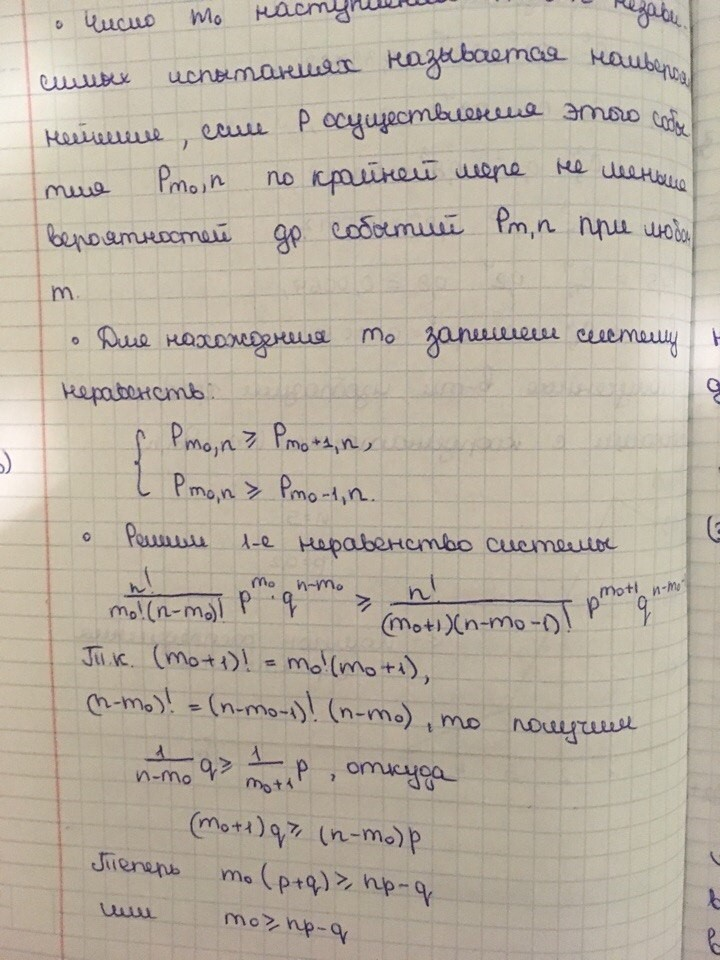 • Число m₀ наступлений
симых испытаниях называется наивероя
нейшим, если P осуществления этого собы
тия Pm₀,n по крайней мере не меньше
вероятностей др событий Pm,n при любо
m.
• Для нахождения m₀ запишем систему
неравенств.
{ Pm₀,n ⩾ Pm₀+1,n,
Pm₀,n ⩾ Pm₀-1,n.
• Решим 1-е неравенство системы
n!/(m₀!(n-m₀)!) p^m₀ · q^(n-m₀) ⩾ n!/((m₀+1)(n-m₀-1)!) p^(m₀+1) q^(n-m₀-
Т.к. (m₀+1)! = m₀!(m₀+1),
(n-m₀)! = (n-m₀-1)! (n-m₀), то получим
1/(n-m₀) q ⩾ 1/(m₀+1) p, откуда
(m₀+1)q ⩾ (n-m₀)p
Теперь m₀(p+q) ⩾ np-q
или m₀ ⩾ np-q